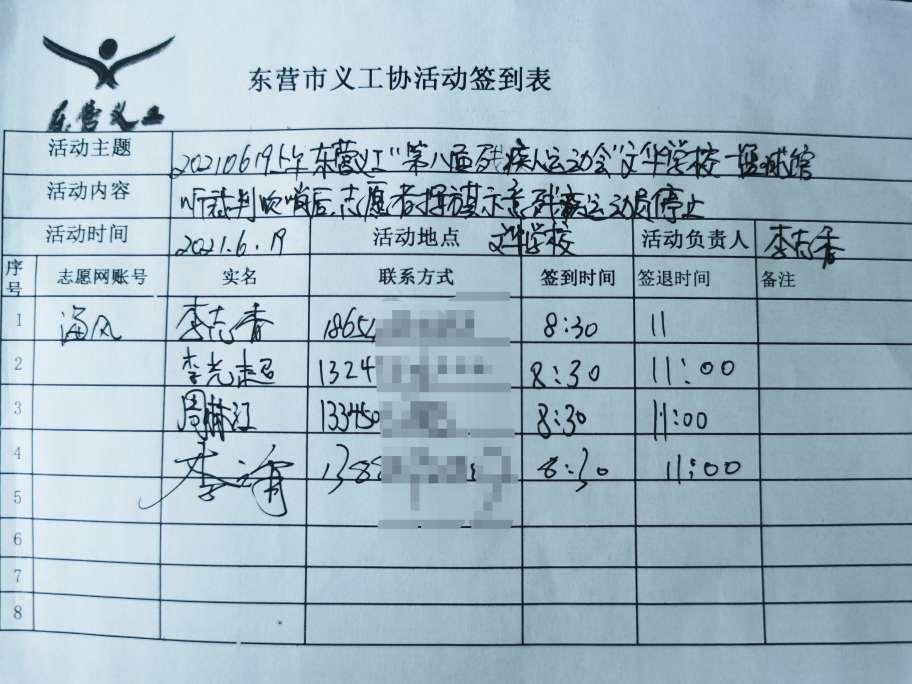 东营义工
东营市义工协活动签到表
活动主题 20210619上午东营义工"第八届残疾人运动会"文华学校-篮球馆
活动内容 听裁判吹哨后,志愿者挥旗示意残疾运动员停止
活动时间 2021.6.19 活动地点 文华学校 活动负责人 李志香
序号 志愿网账号 实名 联系方式 签到时间 签退时间 备注
1 海风 李志香 1865 8:30 11
2 李光超 1324 8:30 11:00
3 周 江 133450 8:30 11:00
4 李 138 8:30 11:00
5
6
7
8